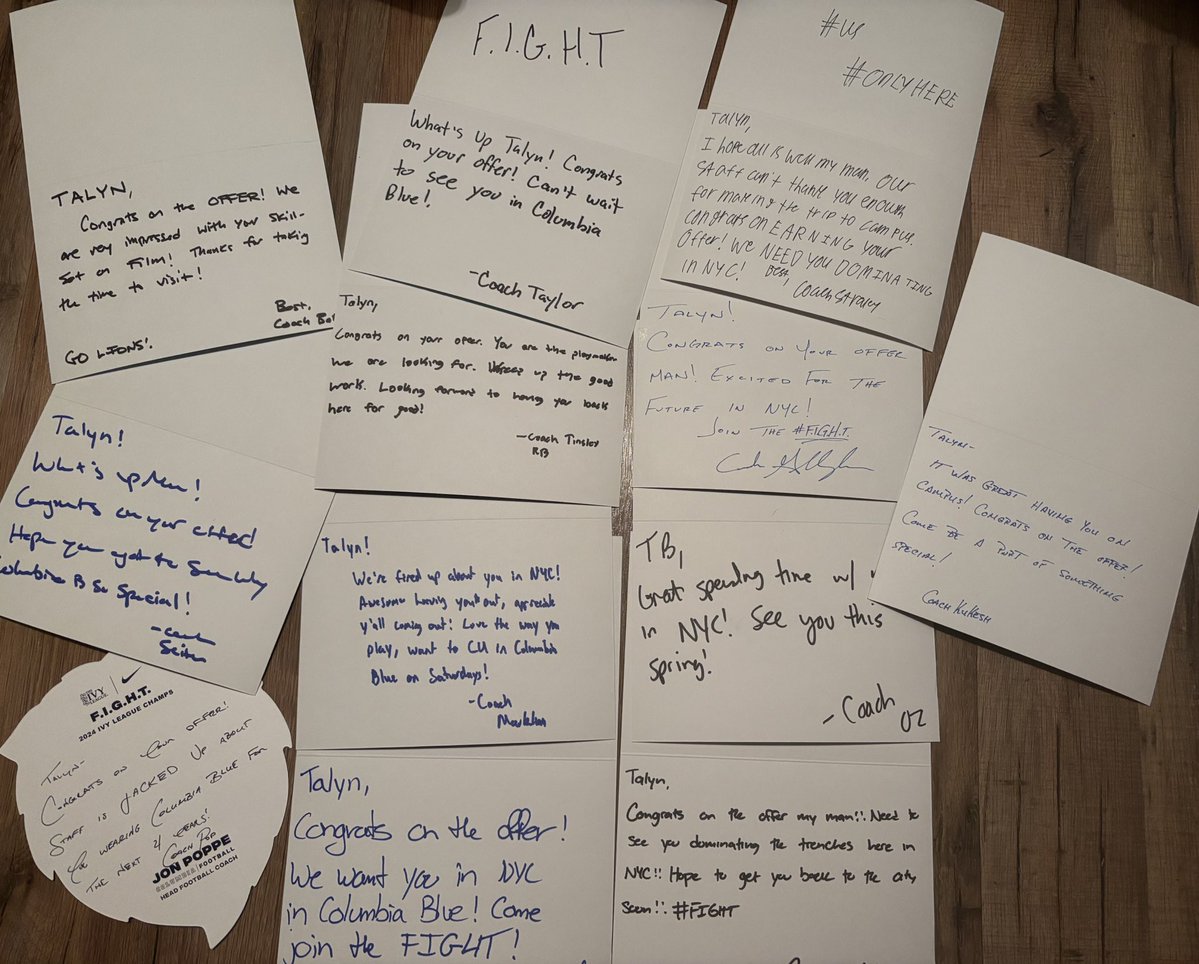 TALYN,
Congrats on the OFFER! We
are very impressed with your skill-
set on Film! Thanks for taking
the time to visit!
Best,
Coach
GO LIONS!
F.I.G.H.T
What's up Talyn! Congrats
on your offer! Can't wait
to see you in Columbia
Blue!
-Coach Taylor
#US
#ONLYHERE
Talyn,
I hope all is well my man. Our
staff can't thank you enough
for making the trip to campus.
Congrats on EARNING your
Offer! We NEED you DOMINATING
in NYC! Best,
Coach
Talyn,
Congrats on your offer. You are the playmaker
we are looking for. Keep up the good
work. Looking forward to having you back
here for good!
-Coach Tinsley
RB
TALYN!
CONGRATS ON YOUR OFFER
MAN! EXCITED FOR THE
FUTURE IN NYC!
JOIN THE #F.I.G.H.T.
TALYN-
IT WAS GREAT HAVING YOU ON
CAMPUS! CONGRATS ON THE OFFER!
COME BE A PART OF SOMETHING
SPECIAL!
COACH KUKESH
Talyn!
What's up Man!
Congrats on your offer!
Hope you got to see why
Columbia is so Special!
-Coach
Talyn!
We're fired up about you in NYC!
Awesome having you out, appreciate
y'all coming out! Love the way you
play, want to CU in Columbia
Blue on Saturdays!
-Coach
TB,
Great spending time w/
in NYC! See you this
spring!
-Coach OZ
IVY LEAGUE
F.I.G.H.T.
2024 IVY LEAGUE CHAMPS
TALYN-
CONGRATS ON YOUR OFFER!
STAFF IS JACKED UP ABOUT
YOU WEARING COLUMBIA BLUE FOR
THE NEXT 4 YEARS!
COACH POP
JON POPPE
COLUMBIA | FOOTBALL
HEAD FOOTBALL COACH
Talyn,
Congrats on the offer!
We want you in NYC
in Columbia Blue! Come
join the FIGHT!
Talyn,
Congrats on the offer my man!! Need to
see you dominating the trenches here in
NYC!! Hope to get you back to the city
soon!! #FIGHT